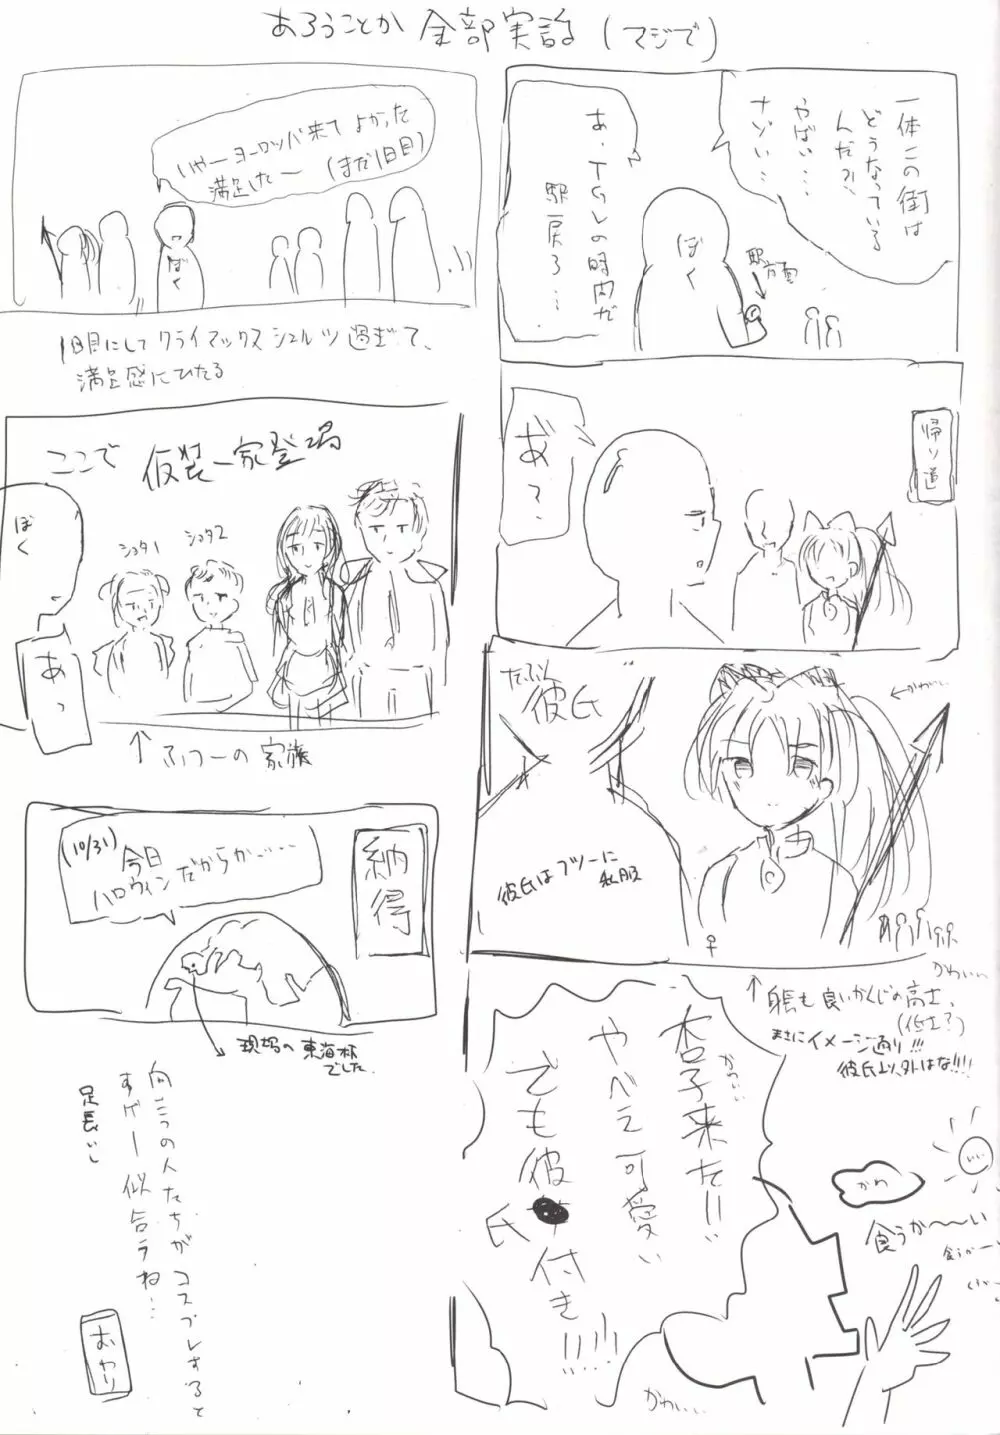 あろうことか全部実話(マジで)
一体この街は
どうなっている
んだ?!
やばい…
ナゾい…
ぼく
駅方面
あ、TGVの時間だ
駅戻ろ…
帰り道
あ?
たぶん
彼氏
彼氏はフツーに
私服
←かわいい
かわいい
身長も良いかんじの高さ、
(低さ?)
まさにイメージ通り!!!
彼氏以外はな!!!!
杏子来た!!
かわいい
やべえ可愛い
でも彼
氏
付き!!!!!
かわいい
いい
かわ
食うか〜〜い
食うか〜い
いやーヨーロッパ来てよかった
満足した〜(まだ1日目)
ぼく
1日目にしてクライマックスシュルツ過ぎて、
満足感にひたる
ここで仮装一家登場
ぼく
ショタ1
ショタ2
あっ
↑フツーの家族
納得
(10/31)
今日
ハロウィンだからか……
現場の東海林
でした
向こうの人たちがコスプレすると
すげー似合うね…
足長いし
おわり